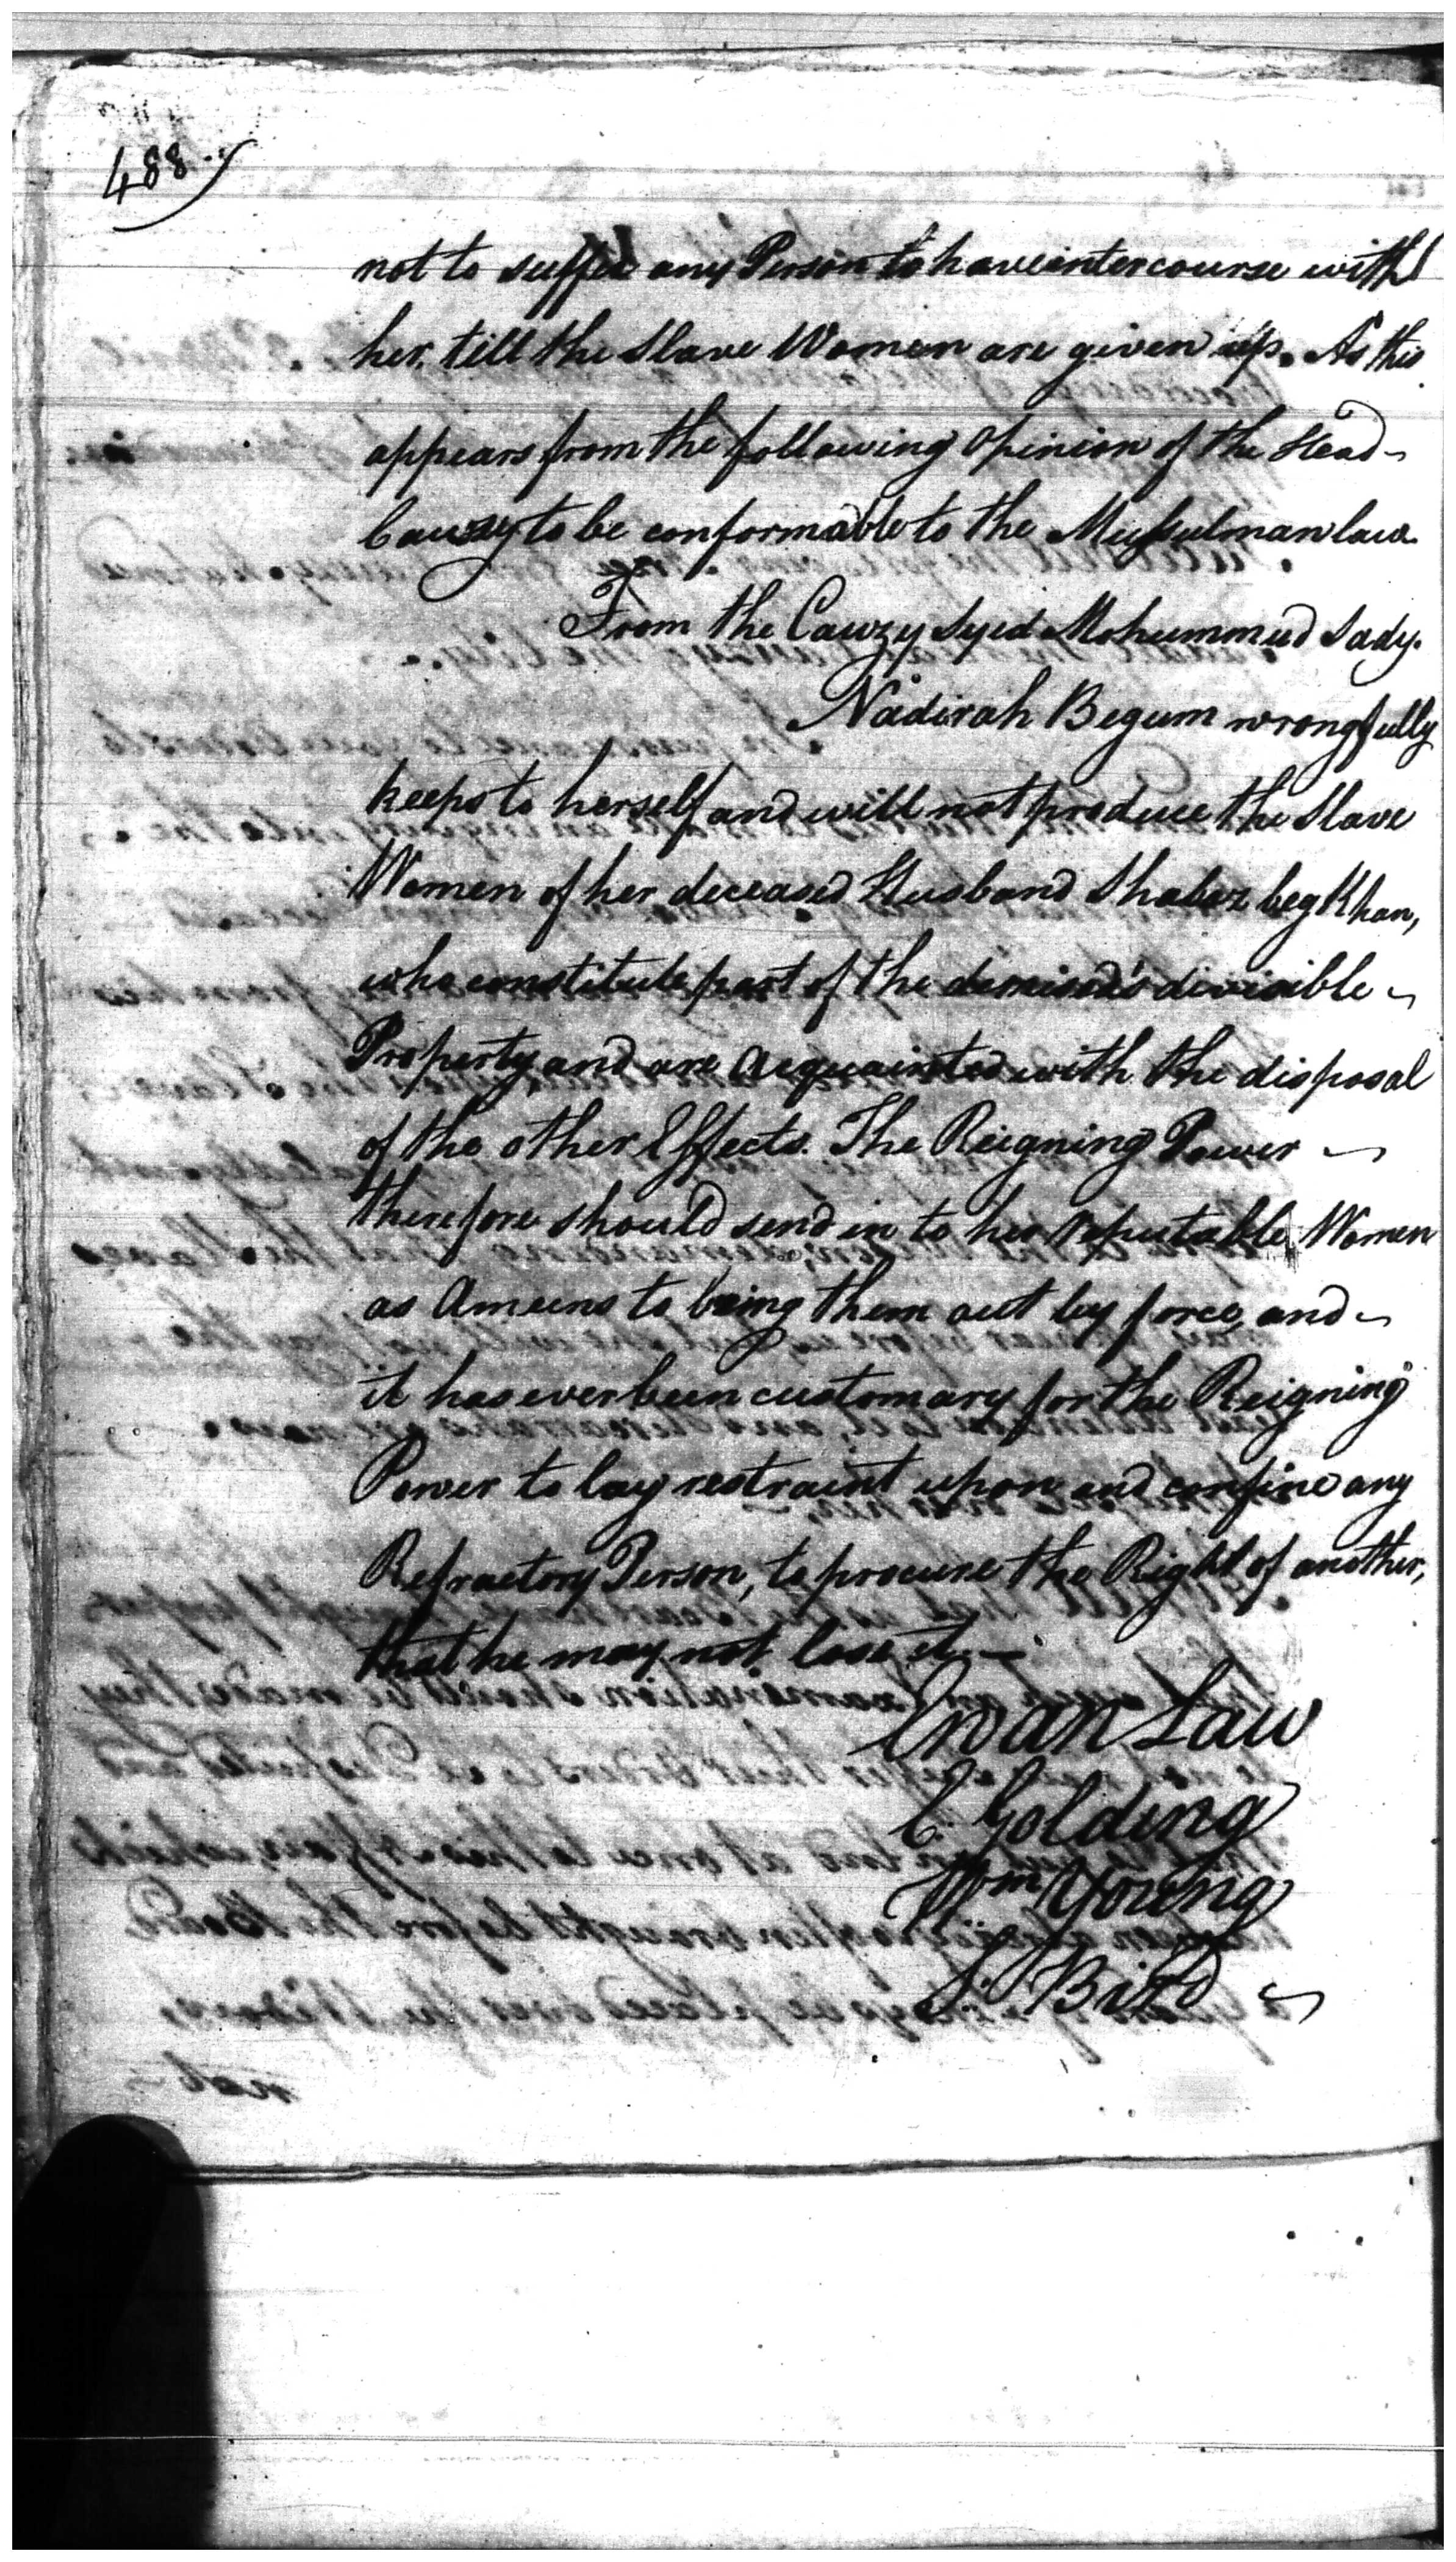 488.
not to suffer any Person to have intercourse with
her, till the Slave Women are given up. As this
appears from the following Opinion of the Head
Cauzy to be conformable to the Mussulman law.
From the Cawzy Syed Mohummud Sady.
Nadirah Begum wrongfully
keeps to herself and will not produce the Slave
Women of her deceased Husband Shabaz beg Khan,
who constitute part of the demised's divisible
Property, and are acquainted with the disposal
of the other Effects. The Reigning Power
therefore should send in to her reputable Women
as Ameens to bring them out by force, and
it has ever been customary for the Reigning
Power to lay restraint upon and confine any
Refractory Person, to procure the Right of another,
that he may not lose it. —
Ewan Law
E. Golding
Wm Young
S. Bird